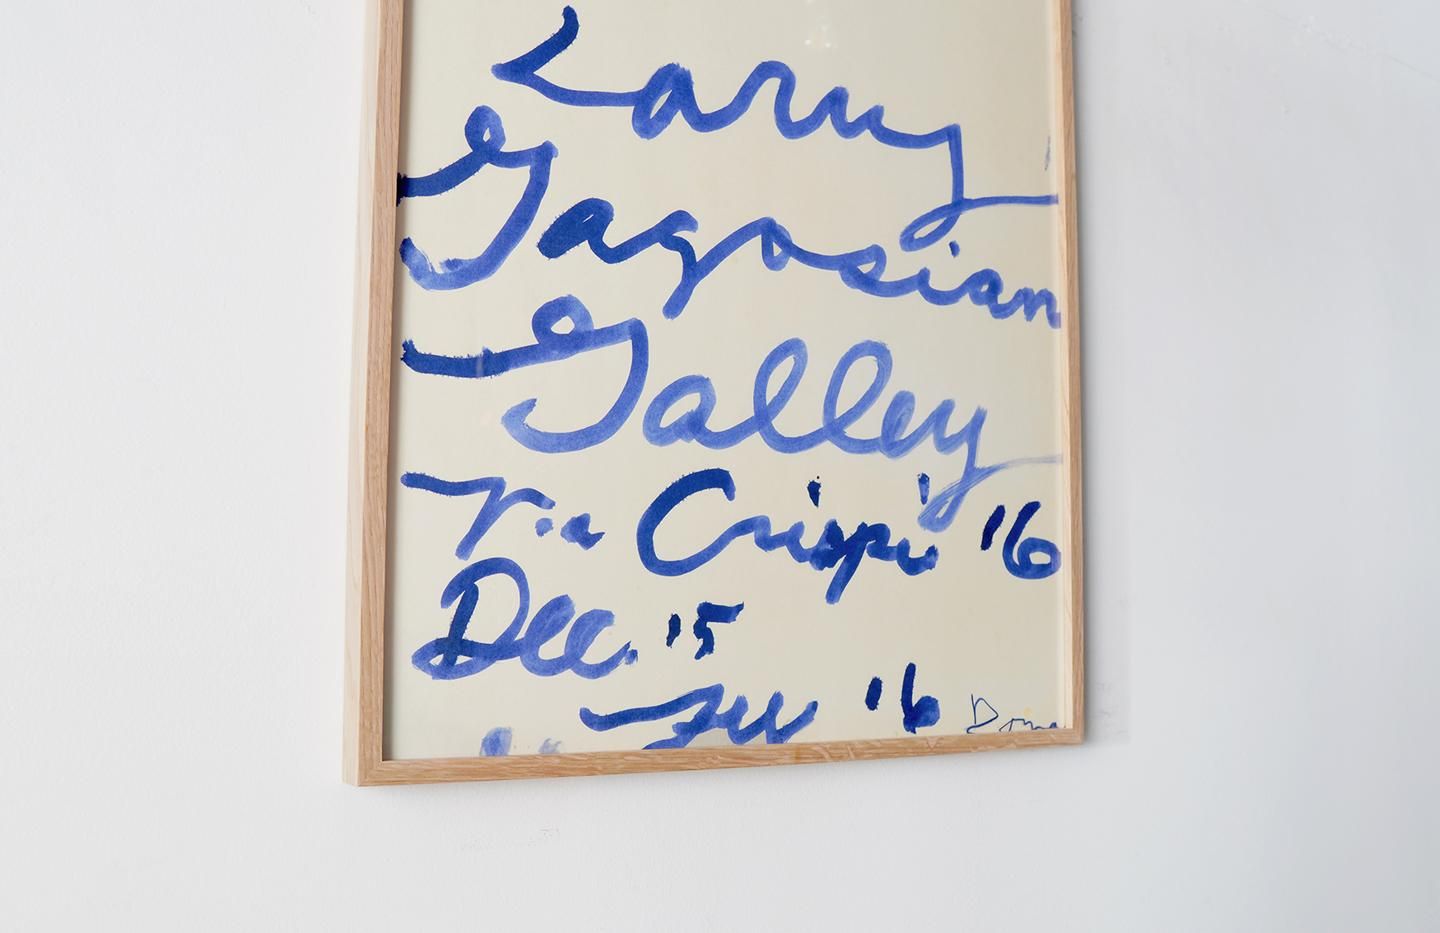 Larry
Gagosian
Galley
Via Crispi '16
Dec. '15
'16